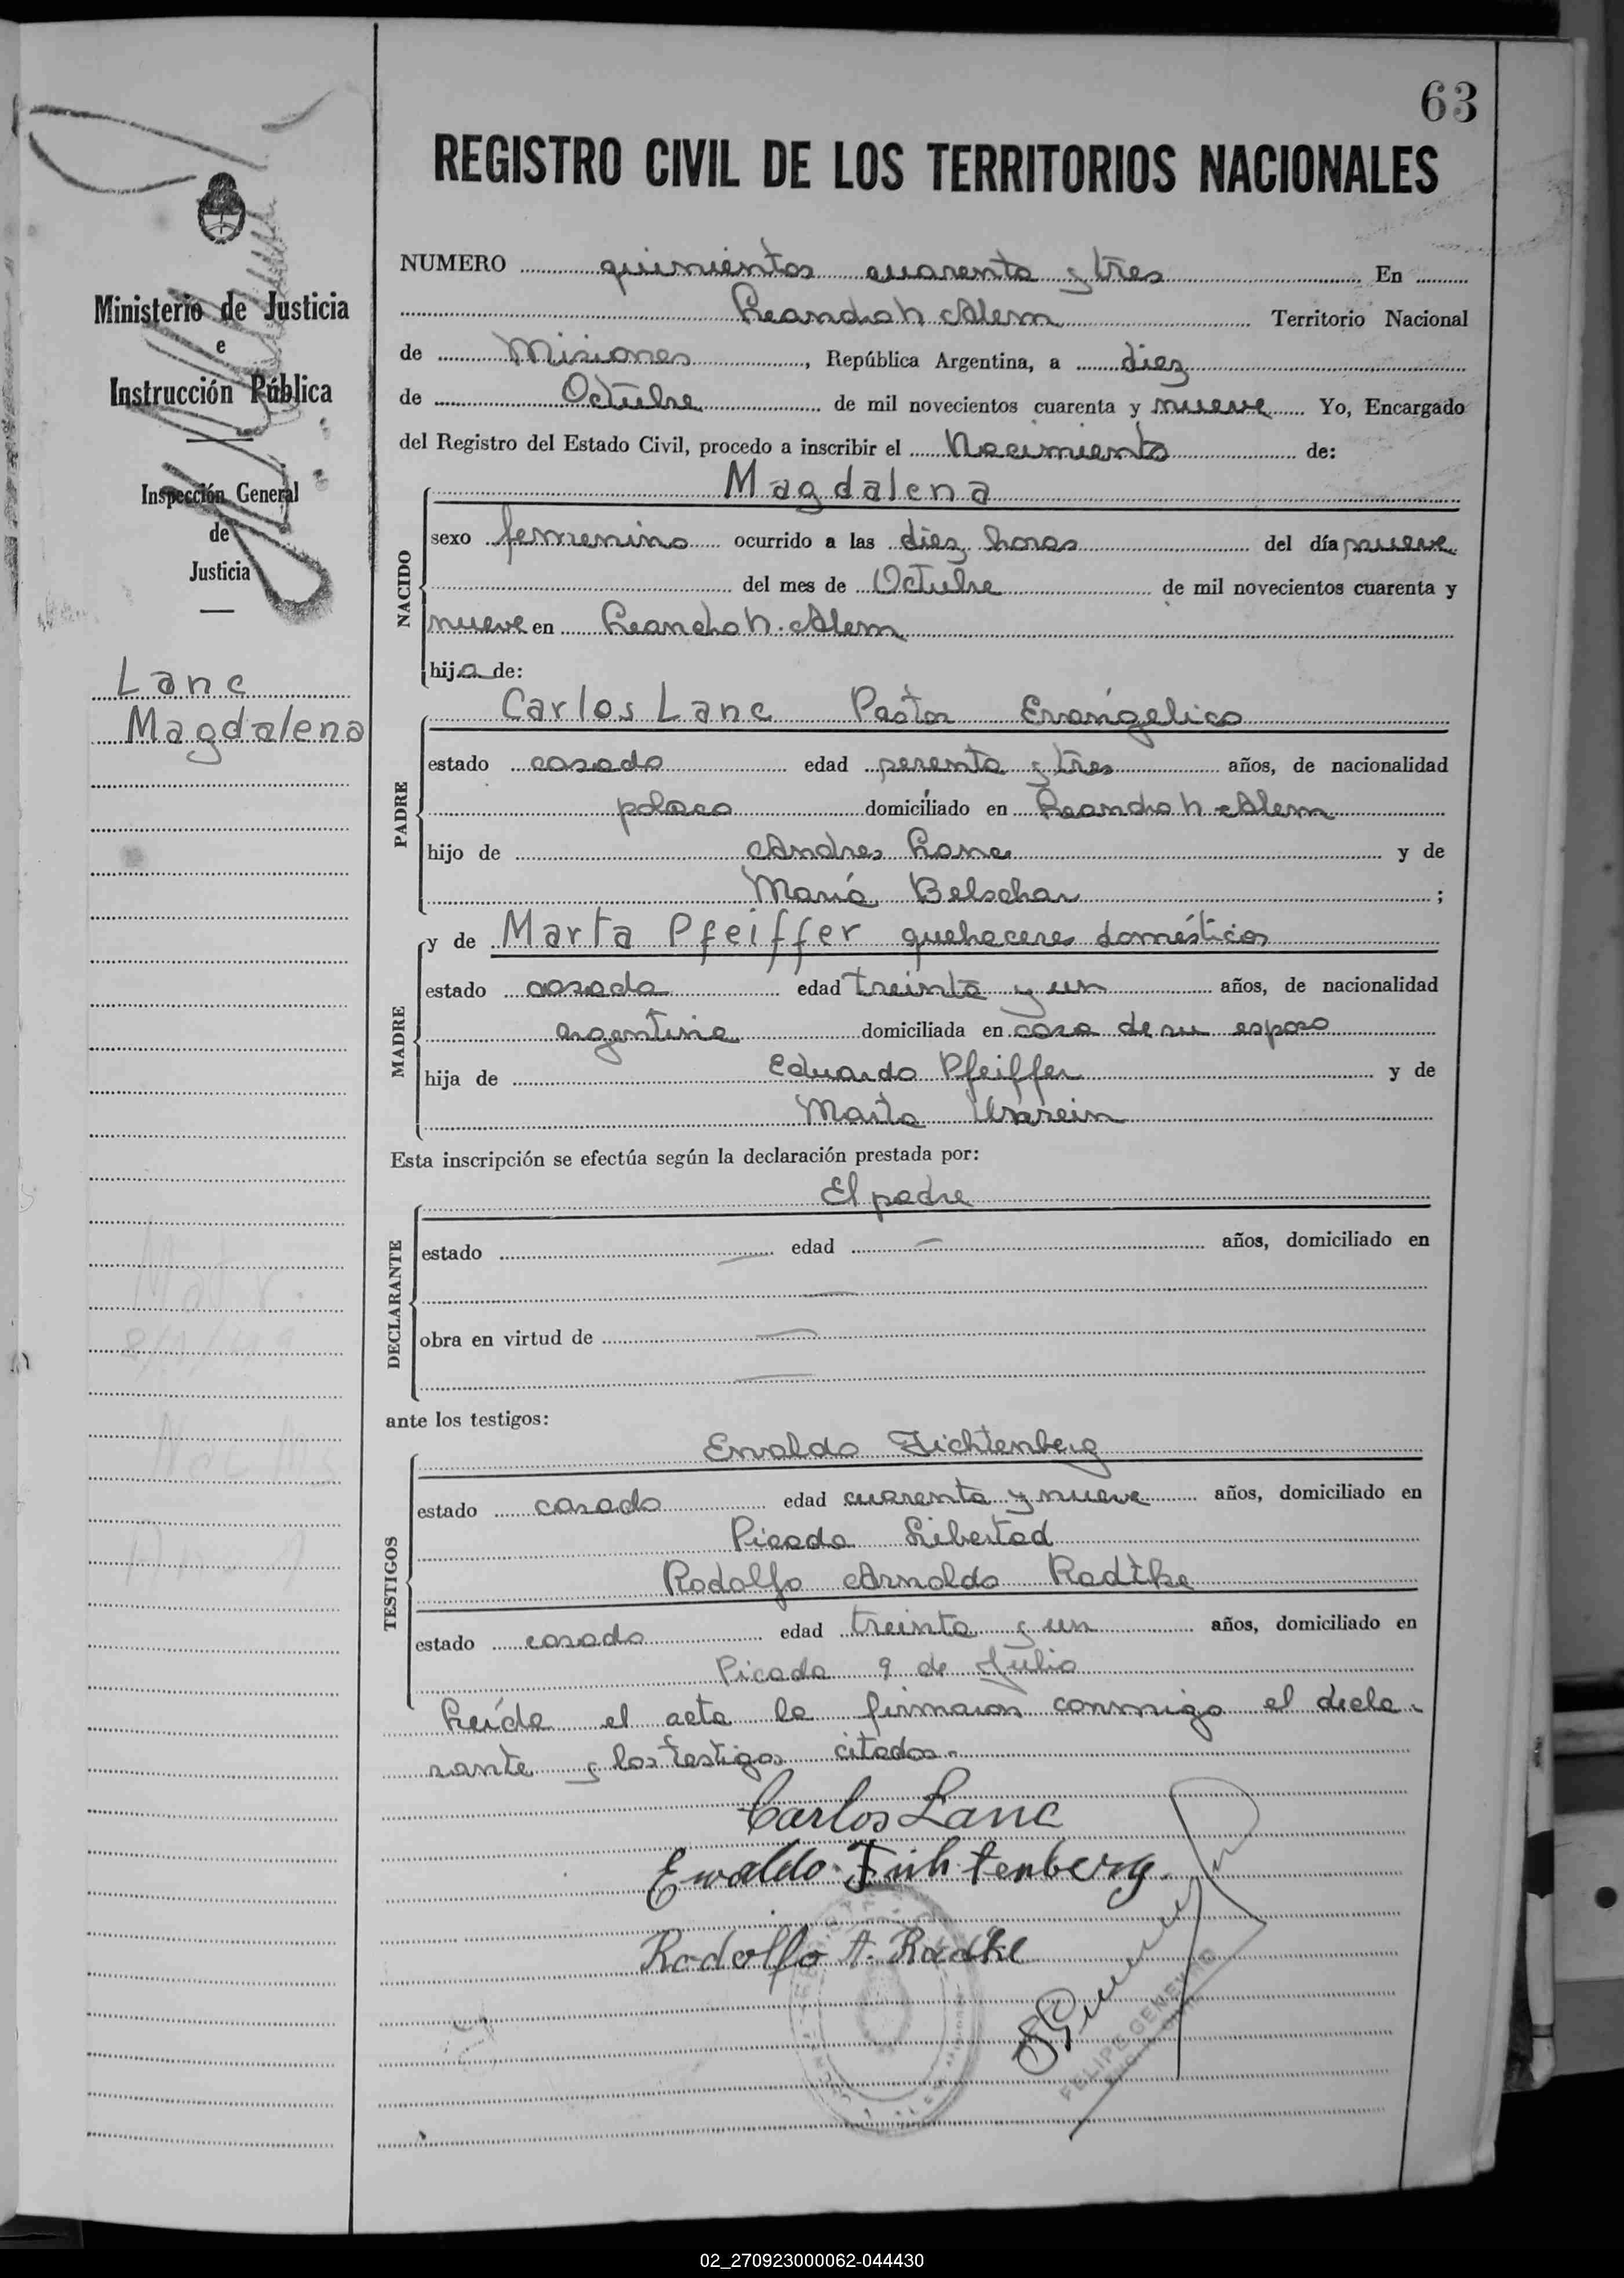 63
REGISTRO CIVIL DE LOS TERRITORIOS NACIONALES
Ministerio de Justicia
e
Instrucción Pública
Inspección General
de
Justicia
Lanc
Magdalena
NUMERO quinientos cuarenta y tres En
Leandro N. Alem Territorio Nacional
de Misiones, República Argentina, a diez
de Octubre de mil novecientos cuarenta y nueve Yo, Encargado
del Registro del Estado Civil, procedo a inscribir el Nacimiento de:
Magdalena
NACIDO
sexo femenino ocurrido a las diez horas del día nueve
del mes de Octubre de mil novecientos cuarenta y
nueve en Leandro N. Alem
hija de:
Carlos Lanc Pastor Evangélico
PADRE
estado casado edad y tres años, de nacionalidad
polaca domiciliado en Leandro N Alem
hijo de Andres Lanc y de
María Belschar ;
y de Marta Pfeiffer quehaceres domésticos
MADRE
estado casada edad treinta y un años, de nacionalidad
argentina domiciliada en casa de su esposo
hija de Eduardo Pfeiffer y de
Marta
Esta inscripción se efectúa según la declaración prestada por:
El padre
DECLARANTE
estado edad años, domiciliado en
obra en virtud de
ante los testigos:
Envaldo Fichtenberg
TESTIGOS
estado casado edad cuarenta y nueve años, domiciliado en
Picada Libertad
Rodolfo Arnoldo Radtke
estado casado edad treinta y un años, domiciliado en
Picada 9 de Julio
Leída el acta la firmaron conmigo el decla-
rante y los testigos citados.-
Carlos Lanc
Ewaldo Fichtenberg.
Rodolfo A. Radtke
FELIPE GENEYRO
02_270923000062-044430